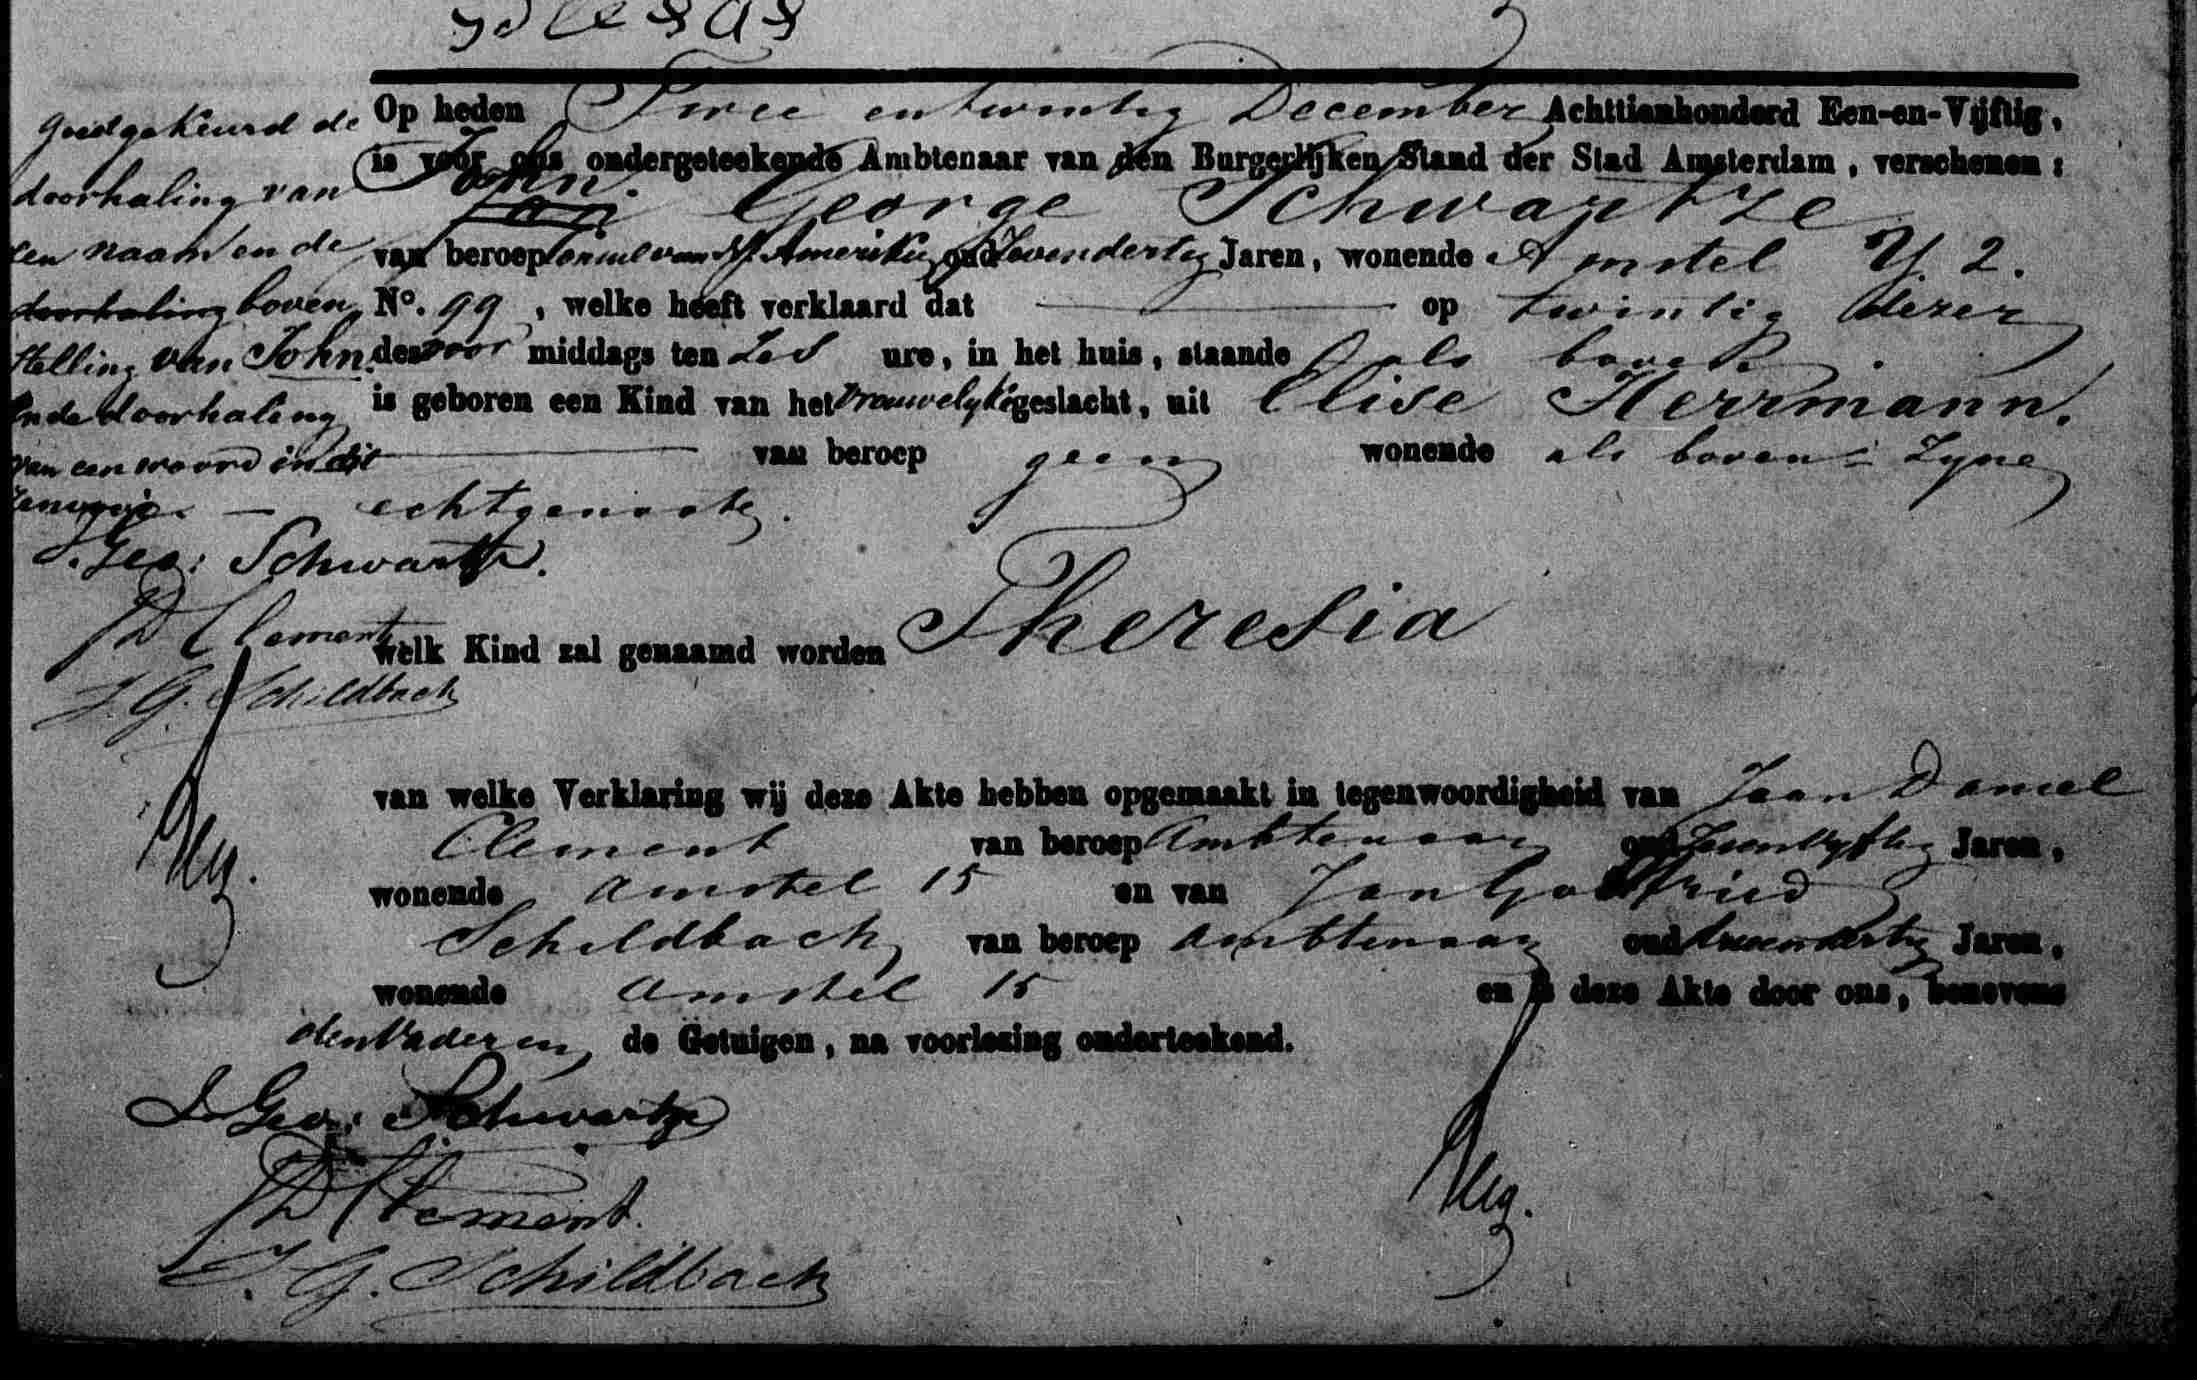 Goedgekeurd de
doorhaling van
een naam en de
doorhaling boven
stelling van John.
en de doorhaling
van een woord in dit
J. Geo: Schwartze.
JD Clement
J. G. Schildbach
Op heden Twee en twintig December Achttienhonderd Een-en-Vijftig,
is voor ons ondergeteekende Ambtenaar van den Burgerlijken Stand der Stad Amsterdam, verschenen:
John.
Jan George Schwartze
van beroep Consul van N. Amerika, oud Zevendertig Jaren, wonende Amstel Y. 2.
No. 99, welke heeft verklaard dat op twintig dezer
des voor middags ten Zes ure, in het huis, staande als boven.
is geboren een Kind van het vrouwelyke geslacht, uit Elise Herrmann.
van beroep geen wonende als boven Zyne
echtgenoote.
welk Kind zal genaamd worden Theresia
van welke Verklaring wij deze Akte hebben opgemaakt in tegenwoordigheid van Jean Daniel
Clement van beroep Ambtenaar oud Zevenvyftig Jaren,
wonende Amstel 15 en van Jan Gottfried
Schildbach van beroep Ambtenaar oud Jaren,
wonende Amstel 15 en is deze Akte door ons, benevens
den Vader en de Getuigen, na voorlezing onderteekend.
J Geo: Schwartze
JD Clement.
J. G. Schildbach